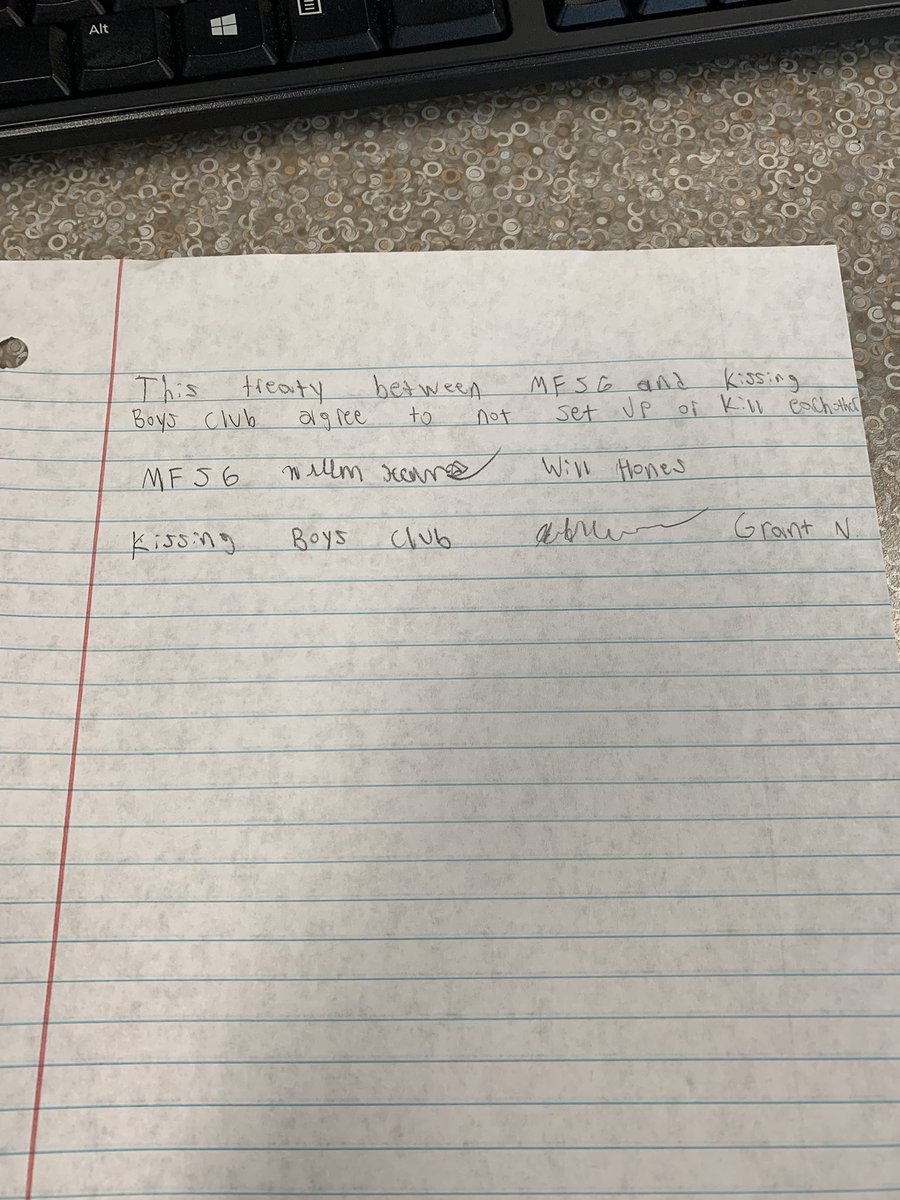 Alt
This treaty between MF56 and Kissing
Boys Club agree to not set up or kill eachother
MF56 Will Hones
Kissing Boys Club Grant N.